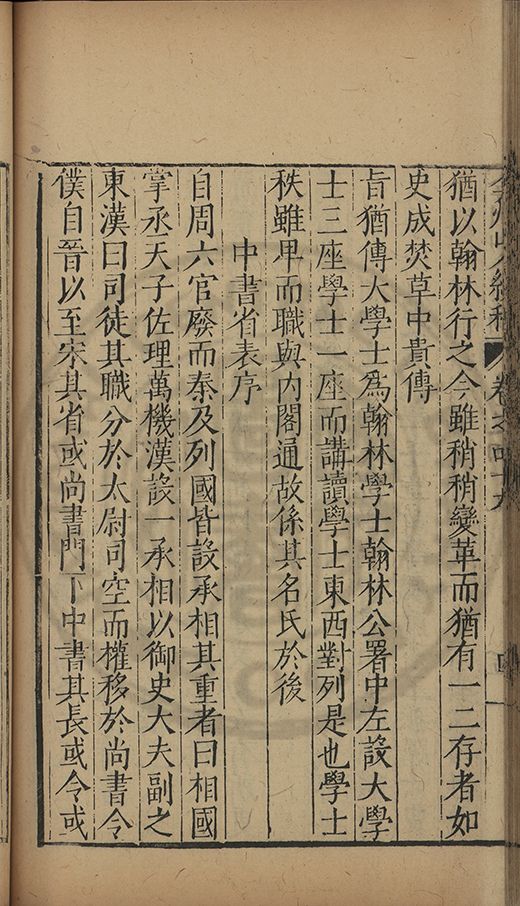 弇州山人續稿 卷之四十九 四
猶以翰林行之今雖稍稍變革而猶有一二存者如
史成焚草中貴傳
旨猶傳大學士爲翰林學士翰林公署中左設大學
士三座學士一座而講讀學士東西對列是也學士
秩雖卑而職與內閣通故係其名氏於後
中書省表序
自周六官廢而秦及列國皆設承相其重者曰相國
掌丞天子佐理萬機漢設一承相以御史大夫副之
東漢曰司徒其職分於太尉司空而權移於尚書令
僕自晉以至宋其省或尚書門下中書其長或令或